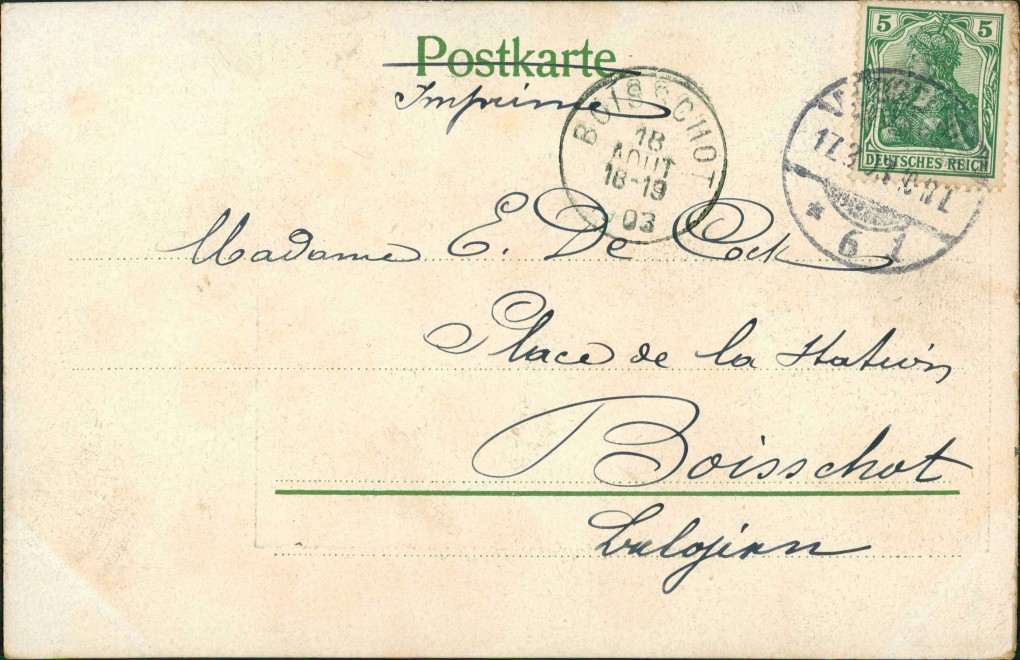 Postkarte
Imprimé
5 5
DEUTSCHES REICH
BOISSCHOT
18
AOUT
18-19
03
* 6 1
Madame E. De Cock
Place de la Station
Boisschot
Belgien